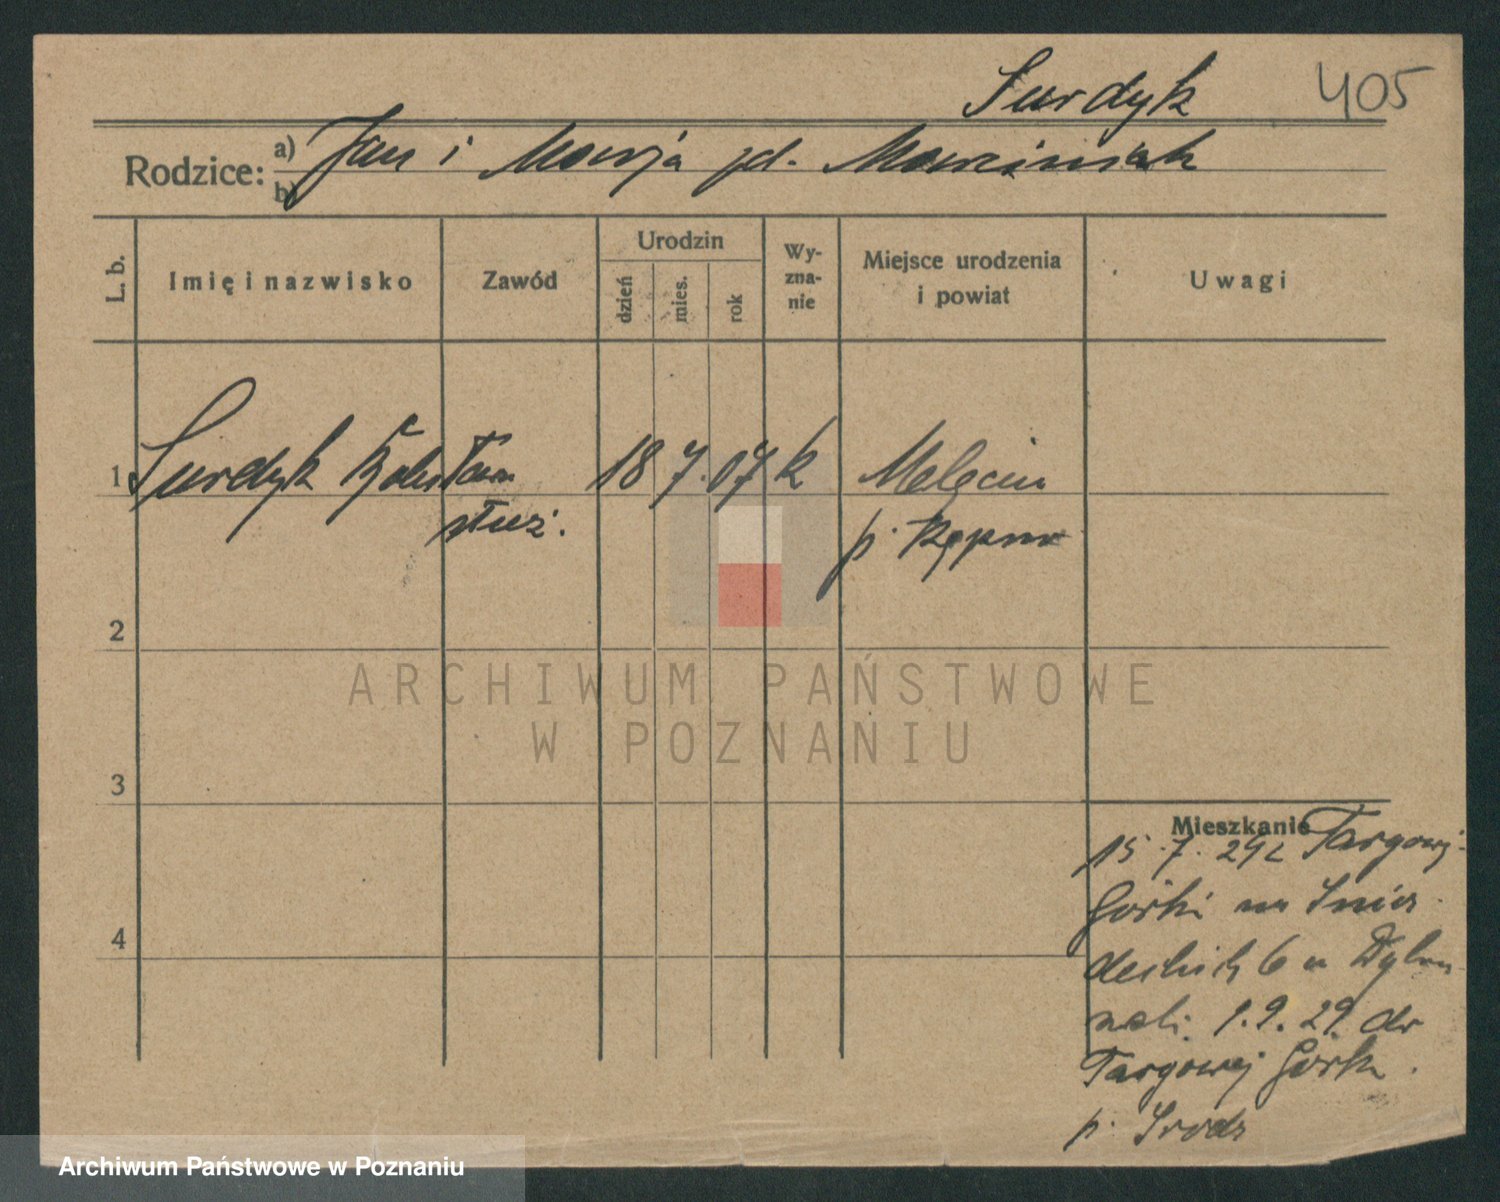 Surdyk
405
Rodzice: a) Jan i Marja zd. Marciniak
b)
L. b.
Imię i nazwisko
Zawód
Urodzin
dzień
mies.
rok
Wy-
zna-
nie
Miejsce urodzenia
i powiat
Uwagi
1 Surdyk 18 7. 07 k
służ. p. Kępno
2
3
4
ARCHIWUM PAŃSTWOWE
W POZNANIU
Mieszkanie
15.7.29 z Targowej
Górki na Śnia-
deckich 6 u
1.9.29. do
Targowej Górki.
p. Środa
Archiwum Państwowe w Poznaniu